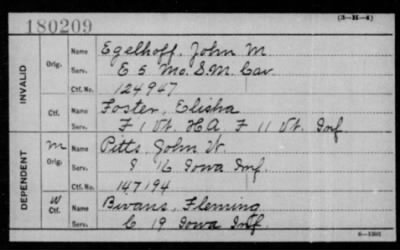 180209
(3-H-4)
INVALID
Orig.
Name Egelhoff, John M.
Serv. E 5 Mo. S.M. Cav.
Ctf. No. 124947
Ctf.
Name Foster, Elisha
Serv. F 1 Vt. H.A. F 11 Vt. Inf
DEPENDENT
M
Orig.
Name Pitts, John W.
Serv. I 16 Iowa Inf.
Ctf. No. 147194
W
Ctf.
Name Bivans, Fleming
Serv. C 19 Iowa Inf.